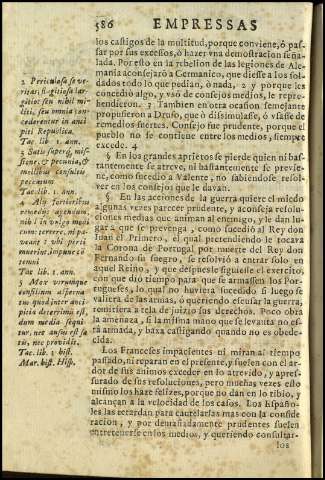 586 EMPRESSAS
los castigos de la multitud, porque conviene, ò pas-
sar por sus excessos, ò hazer vna demostracion seña-
lada. Por esto en la rebelion de las legiones de Ale-
mania aconsejarõ a Germanico, que diesse a los sol-
dados todo lo que pedian, ò nada, 2 y porque les
concedió algo, y vsó de consejos medios, le repre-
hendieron. 3 Tambien en otra ocasion semejante
propusieron a Druso, que ò dissimulase, ò vsasse de
remedios fuertes. Consejo fue prudente, porque el
pueblo no se contiene entre los medios, siempre
excede. 4
§ En los grandes aprietos se pierde quien ni bas-
tantemente se atreve, ni bastantemente se previe-
ne, como sucedió a Valente, no sabiendose, resol-
ver en los consejos que le davan.
§ En las acciones de la guerra quiere el miedo
algunas vezes parecer prudente, y aconseja resolu-
ciones medias que animan al enemigo, y le dan lu-
gar a que se prevenga, como sucedió al Rey don
Iuan el Primero, el qual pretendiendo le tocava
la Corona de Portugal, por muerte del Rey don
Fernando su suegro, se resolvió a entrar solo en
aquel Reino, y que despues le siguiesse el exercito,
con que dió tiempo para que se armassen los Por-
tugueses, lo qual no huviera sucedido si luego se
valiera de las armas, ò queriendo escusar la guerra,
remitiera a tela de juizio sus derechos. Poco obra
la amenaza, si la misma mano que se levanta no es-
tá armada, y baxa castigando quando no es obede-
cida.
Los Franceses impacientes ni miran al tiempo
passado, ni reparan en el presente, y suelen con el ar-
dor de sus animos exceder en lo atrevido, y apres-
surado de sus resoluciones, pero muchas vezes esto
mismo los haze felizes, porque no dan en lo tibio, y
alcançan a la velocidad de los casos. Los Españo-
les las retardan para cautelarlas mas con la conside-
racion, y por demasiadamente prudentes suelen
entretenerse en los medios, y queriendo consultar-
los
2 Periculosa se ve-
ritas, flagitiosa lar-
gitio: seu nihil mi-
liti, seu omnia con-
cederentur in anci-
piti Republica.
Tac. lib. 1. ann.
3 Satis superq; mis-
sione, & pecunia, &
mollibus consultis
peccatum.
Tac. lib. 1. ann.
4 Alij fortioribus
remedijs agendum,
nihil in vulgo modi-
cum: terrere, ni pa-
veant: vbi perti-
muerint, impune cõ
temni
Tac. lib. 1. ann.
5 Mox vtrumque
consilium aspernā-
tus quod inter anci-
pitia deterrimū est,
dum media sequi-
tur, nec ausus est sa-
tis, nec providit.
Tac. lib. 3 hist.
Mar. hist. Hisp.